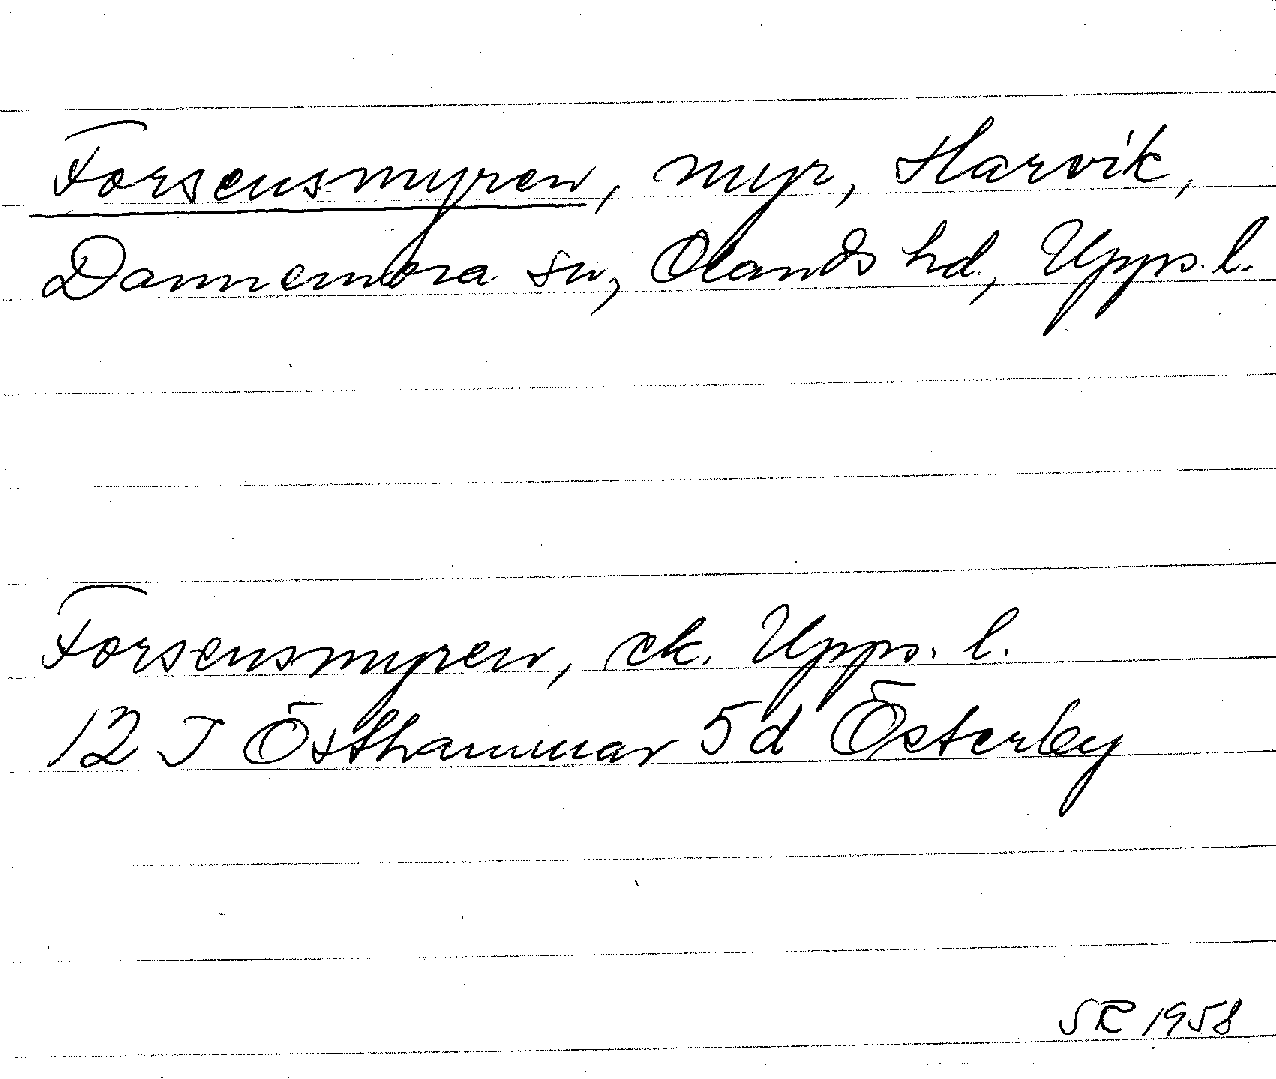 Forsensmyren, myr, Harvik,
Dannemora sn, Olands hd, Upps. l.
Forsensmyren, ek. Upps. l.
12 I Östhammar 5d Österby
SR 1958